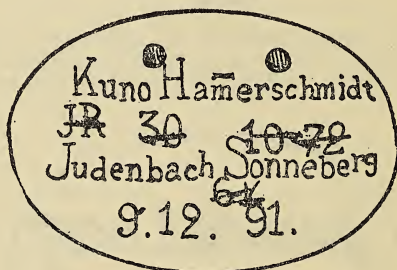 Kuno Ham̅erschmidt
JR 30 10 72
Judenbach Sonneberg
9.12. 91.